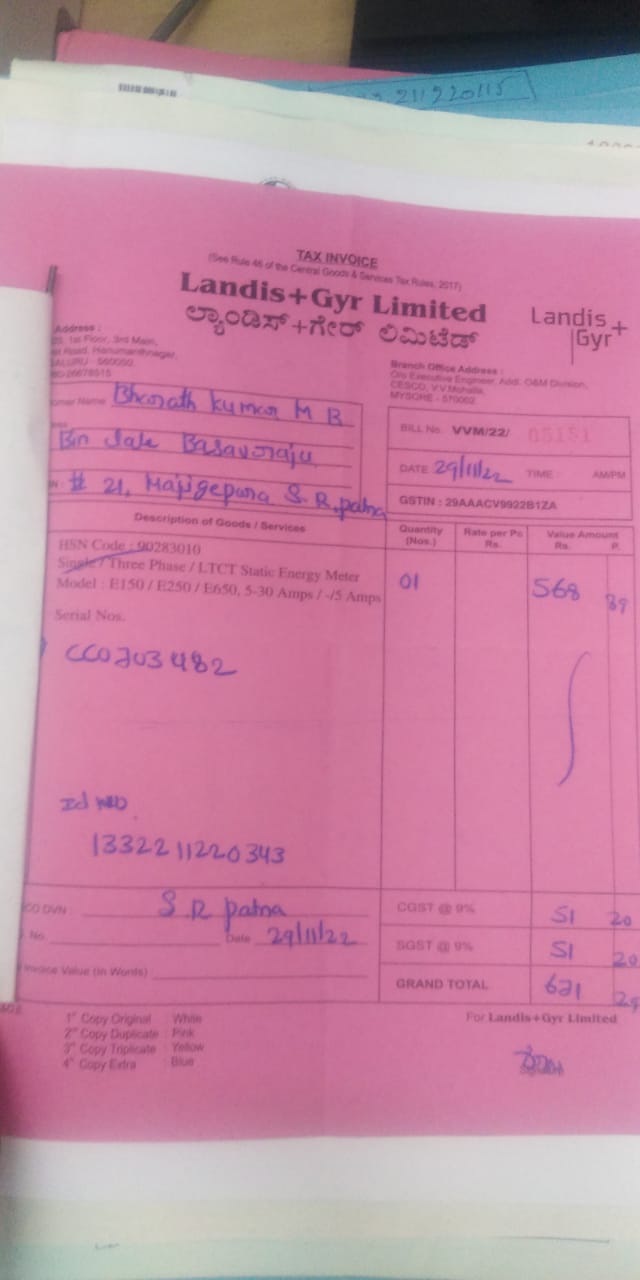 211220115
TAX INVOICE
(See Rule 46 of the Central Goods & Services Tax Rules, 2017)
Landis+Gyr Limited
ಲ್ಯಾಂಡಿಸ್+ಗೇರ್ ಲಿಮಿಟೆಡ್
Landis+
Gyr
Address :
1st Floor, 3rd Main,
Road, Hanumanthnagar,
Branch Office Address :
O/o Executive Engineer, Addl. O&M Division,
CESCO, V.V.Mohalla,
MYSORE - 570002.
Name Bharath kumar M B
Bin Late Basavaraju
# 21, Majigepura S.R.patna
BILL No. VVM/22/ 05151
DATE 29/11/22 TIME : AM/PM
GSTIN : 29AAACV9922B1ZA
Description of Goods / Services
Quantity (Nos.)
Rate per Pc Rs.
Value Amount
Rs. P.
HSN Code : 90283010
Single / Three Phase / LTCT Static Energy Meter
Model : E150 / E250 / E650, 5-30 Amps / -/5 Amps
01 568 89
Serial Nos.
CC0703482
Id NO
1332211220343
DVN : S R patna
No. Date 29/11/22
Invoice Value (In Words)
CGST @ 9% 51 20
SGST @ 9% 51 20
GRAND TOTAL 671 29
1st Copy Original : White
2nd Copy Duplicate : Pink
3rd Copy Triplicate : Yellow
4th Copy Extra : Blue
For Landis+Gyr Limited